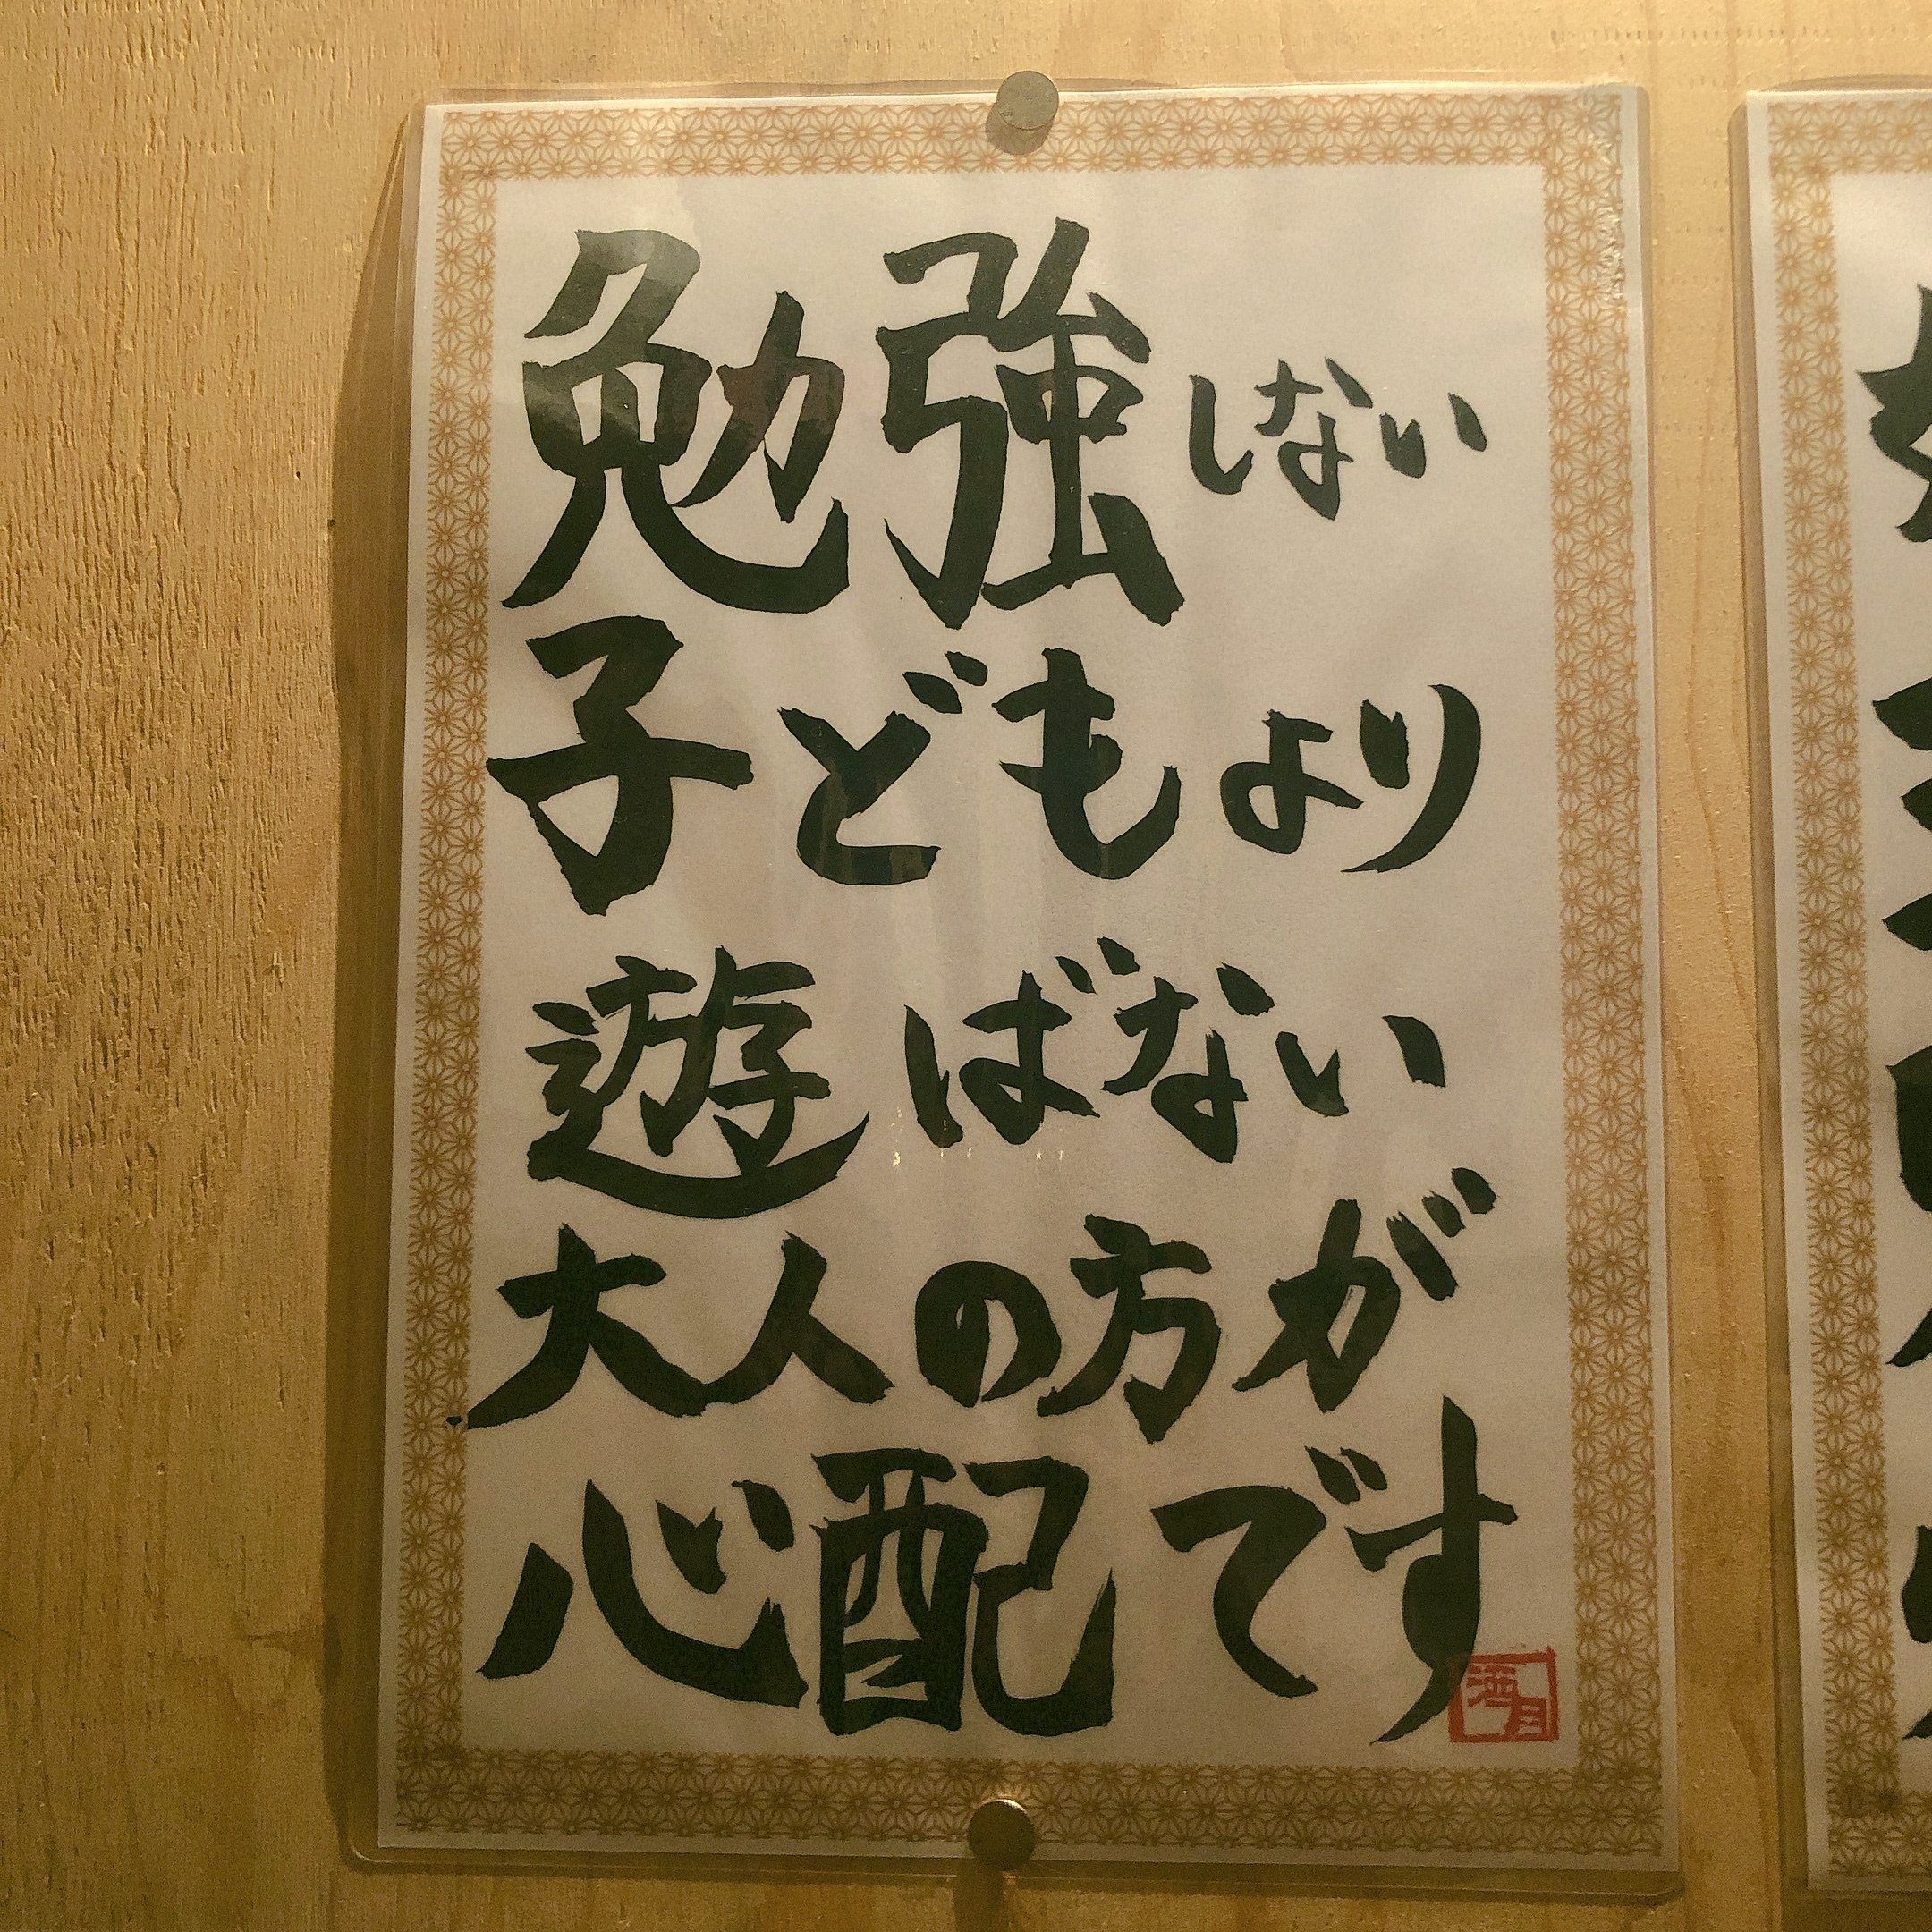 勉強しない
子どもより
遊ばない
大人の方が
心配です